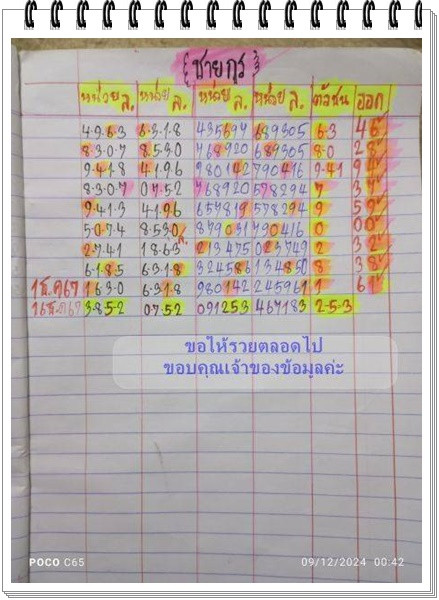 {ชายกุร}
หน่วย ล. หน่วย ล. หน่วย ล. หน่วย ล. ตัวชน ออก
4-9-6-3 6-3-1-8 435694 689305 6-3 46
8-3-0-7 8-5-3-0 768920 689305 8-0 28
9-4-1-8 4-1-9-6 980142 790416 9-4-1 94
8-3-0-7 0-7-5-2 768920 578294 7 37
9-4-1-3 4-1-9-6 657819 578294 9 59
5-0-7-4 8-5-3-0 ล. 879031 790416 0 00
2-7-4-1 1-8-6-3 213475 023749 2 32
6-1-8-5 6-3-1-8 324586 134850 8 38
1 ธ.ค 67 1-6-3-0 6-3-1-8 980142 245961 1 61
16 ธ.ค 67 3-8-5-2 0-7-5-2 091253 467183 2-5-3
ขอให้รวยตลอดไป
ขอบคุณเจ้าของข้อมูลค่ะ
POCO C65 09/12/2024 00:42